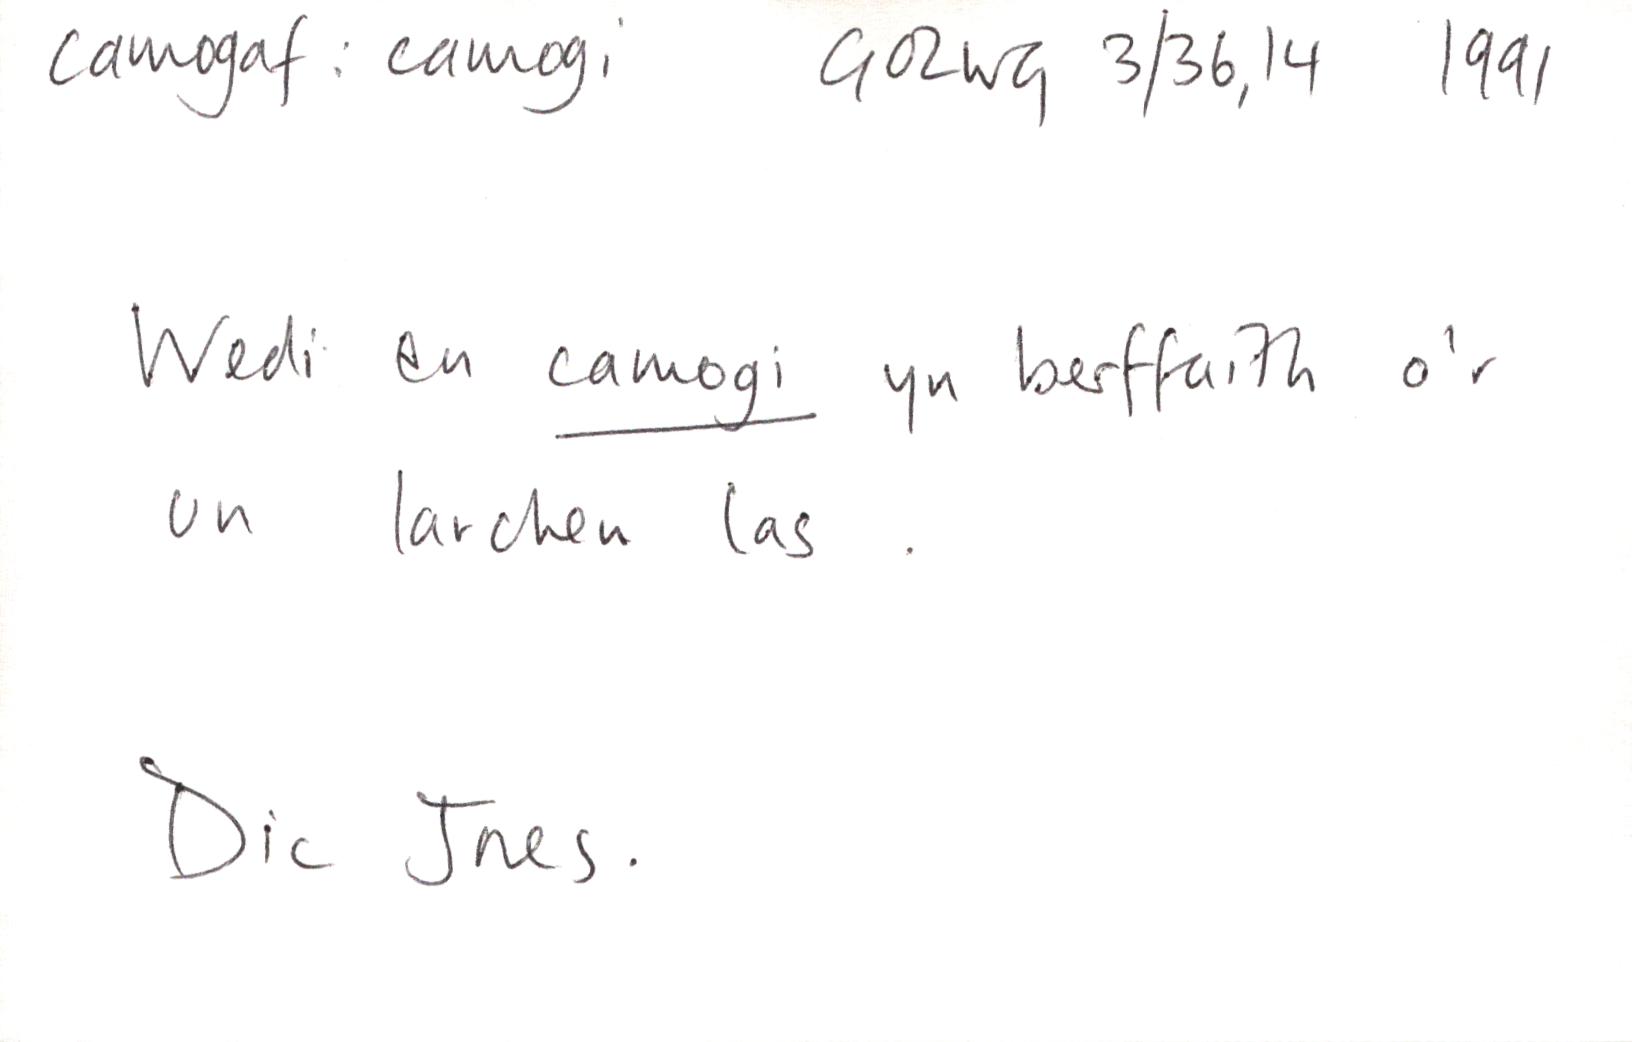 camogaf : camogi GOLWG 3/36,14 1991
Wedi eu camogi yn berffaith o'r
un larchen las .
Dic Jnes.